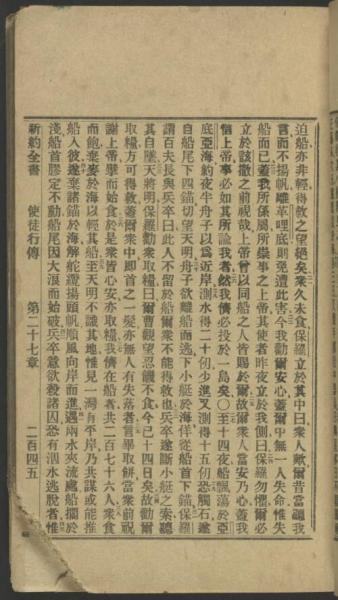 迫船亦非輕得救之望絕矣衆久未食保羅立於其中曰衆人歟爾昔當聽我
言而不揚帆離革哩底則免遭此害今我勸爾安心蓋爾中無一人失命惟失
船而已蓋我所係屬所崇事之上帝其使者昨夜立於我側曰保羅勿懼爾必
立於該撒之前視哉上帝曾以同船之人皆賜於爾故爾衆人當安乃心蓋我
信上帝事必如其所諭我者然我儕必投於一島矣○至十四夜船飄蕩於亞
底亞海約夜半舟子以爲近岸測水得二十仞少進又測得十五仞恐觸石遂
自船尾下四錨切望天明舟子欲離船而逃下小艇於海佯從船首下錨保羅
謂百夫長與兵卒曰此人不留於船爾衆不能得救也兵卒遂斷小艇之索聽
其自墜天將明保羅勸衆取糧曰爾曹觀望忍饑不食今已十四日矣故勸爾
取糧方可得救蓋爾衆中卽首之一髮亦無人有失落者言畢取餅當衆前祝
謝上帝擘而始食於是衆皆心安亦取糧我儕在船者共二百七十六人衆食
而飽棄麥於海以輕其船至天明不識其地惟見一灣有平岸乃共謀或能推
船入彼遂棄諸錨於海解舵纜揚頭帆順風向岸而進遇兩水夾流處船擱於
淺船首膠定不動船尾因大浪而始破兵卒意欲殺諸囚恐有泅水逃脫者惟
新約全書 使徒行傳 第二十七章 二百四五